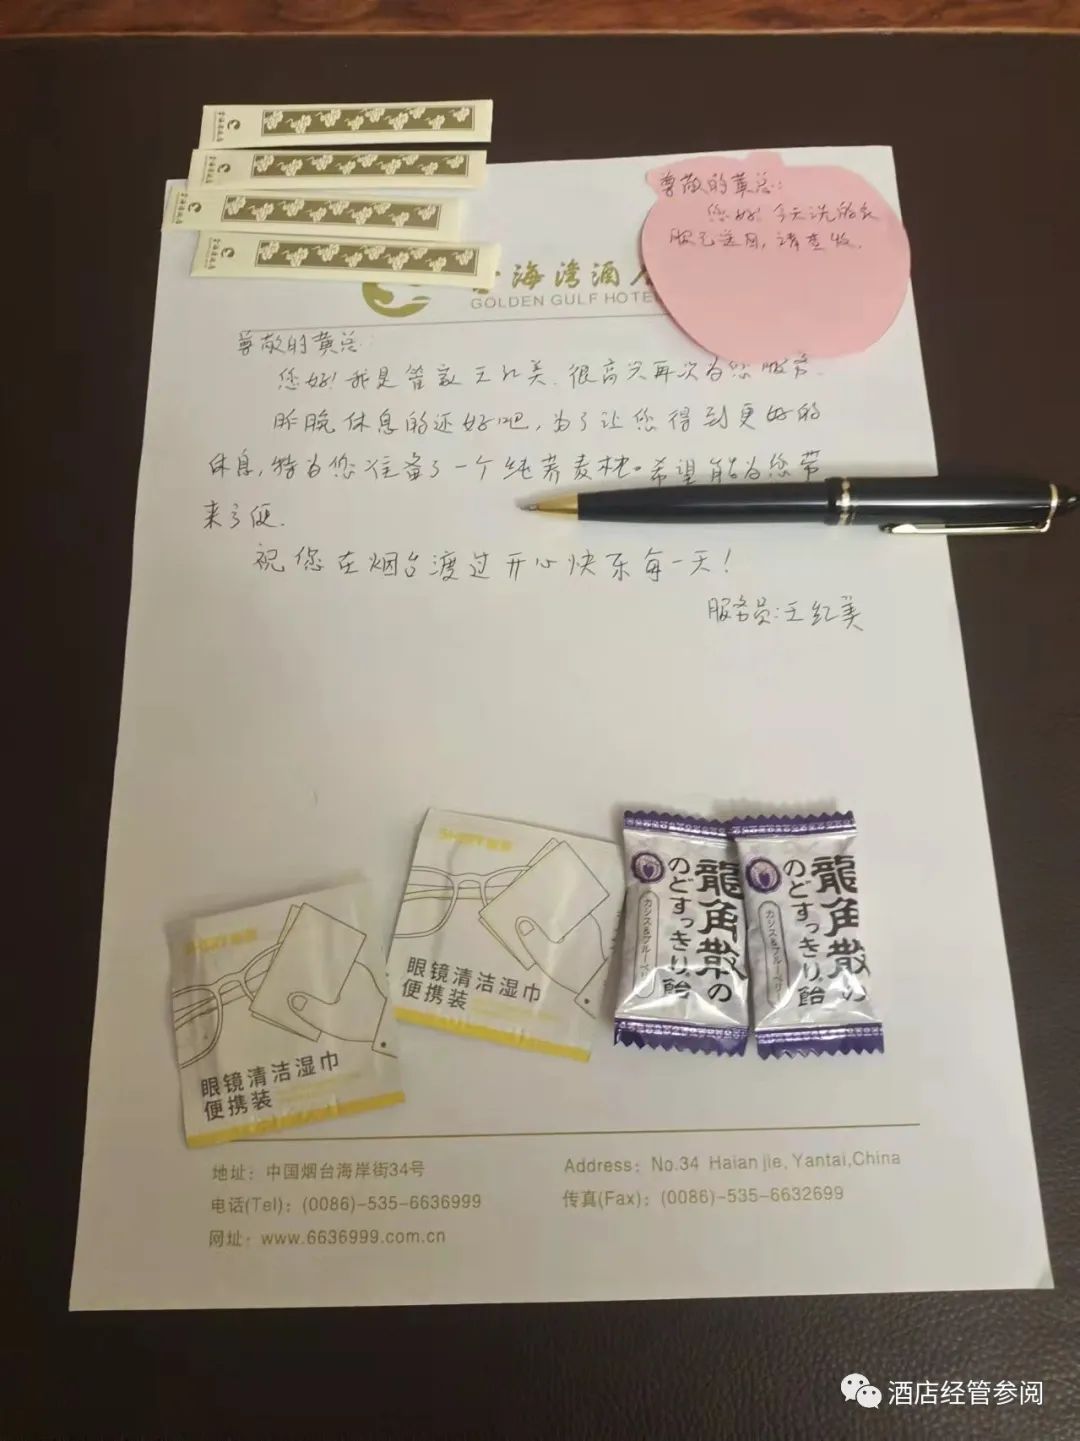 尊敬的黄总:
您好!今天洗的衣
服已送回,请查收.
海湾酒
GOLDEN GULF HOTE
尊敬的黄总:
您好!我是管家王红美.很高兴再次为您服务.
昨晚休息的还好吧,为了让您得到更好的
休息,特为您准备了一个纯荞麦枕。希望能为您带
来方便.
祝您在烟台渡过开心快乐每一天!
服务员:王红美
眼镜清洁湿巾
便携装
眼镜清洁湿巾
便携装
龍角散の
のどすっきり飴
カシス&ブルーベリー
龍角散の
のどすっきり飴
カシス&ブルーベリー
地址：中国烟台海岸街34号
Address：No.34 Haian jie, Yantai,China
电话(Tel)：(0086)-535-6636999
传真(Fax)：(0086)-535-6632699
网址：www.6636999.com.cn
酒店经管参阅